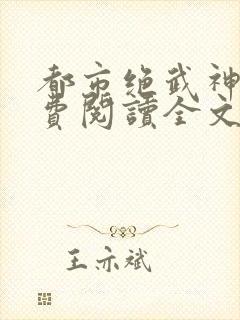 都市绝武神
费阅讀全文
王亦斌